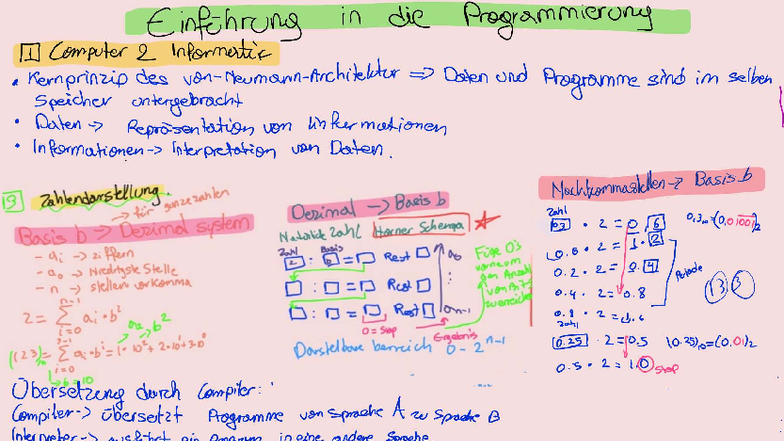 Einführung in die Programmierung
1 Computer & Informatik
• Kernprinzip des von-Neumann-Architektur => Daten und Programme sind im selben
Speicher untergebracht
• Daten -> Repräsentation von Informationen
• Informationen -> Interpretation von Daten.
Zahlendarstellung.
-> für ganze zahlen
Basis b -> Dezimal system
- ai -> ziffern
- a0 -> Niedrigste Stelle
- n -> stellen vor komma
Dezimal -> Basis b
Natürliche Zahl Horner Schema
Zahl Basis
: = Rest a0
: = Rest
: = Rest an-1
0 = Stop Ergebnis
Füge 0's
vorne um
den Anzahl
von Bits
zu erreichen
Darstellbare bereich 0 - 2^n-1
Nachkommastellen -> Basis b
Zahl
0.3 · 2 = 0.6
0.6 · 2 = 1.2
0.2 · 2 = 0.4
0.4 · 2 = 0.8
0.8 · 2 = 1.6
Periode
zahl
0.25 · 2 = 0.5 (0.25)10 = (0.01)2
0.5 · 2 = 1.0 Stop
Übersetzung durch Compiler:
Compiler -> übersetzt Programme von Sprache A zu Sprache B
Interpreter -> ausführt ein Programm in eine andere Sprache